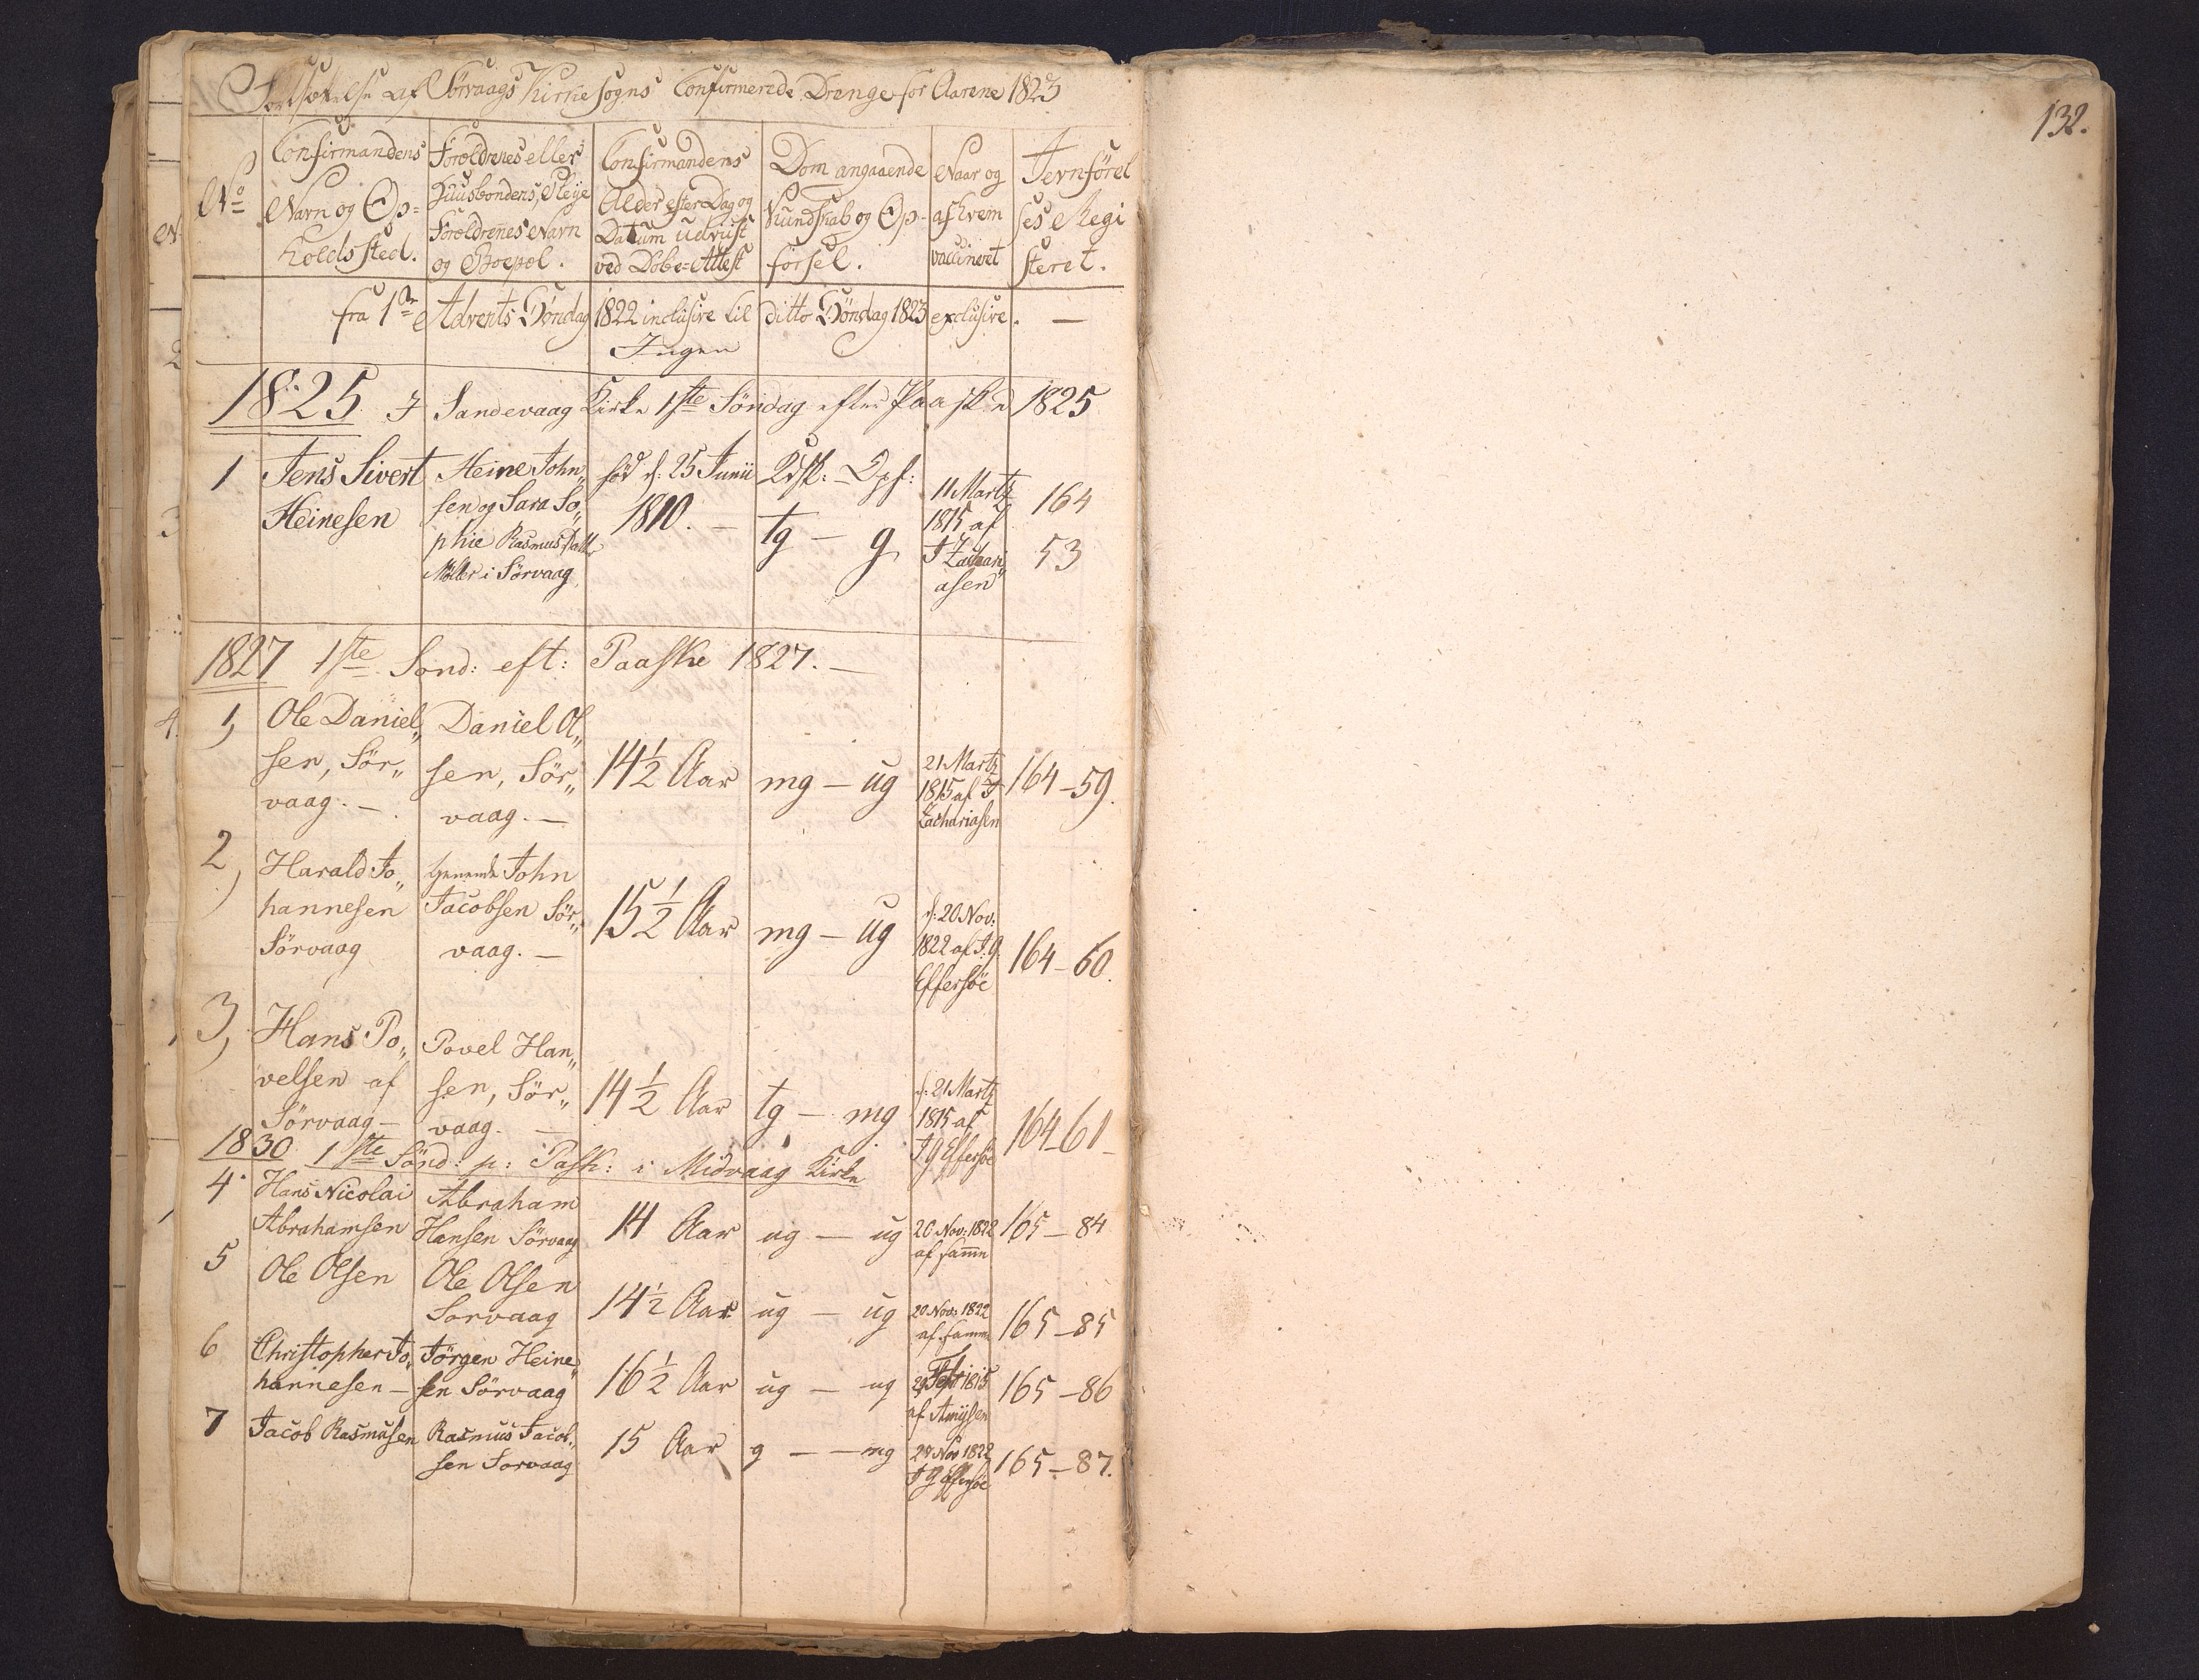 Fortsættelse af Sörvaags Kirkesogns Confirmerede Drenge for Aarene 1823
No
Confirmandens
Navn og Op=
holds sted.
Forældrenes eller
Huusbondens, Pleye
Forældrenes Navn
og Boepæl.
Confirmandens
Alder efter Dag og
Datum udviist
ved Döbe=Attest
Dom angaaende
Kundskab og Op-
försel.
Naar og
af hvem
vaccineret
Jevnförel
ses Regi
steret.
fra 1te Advents Söndag 1822 inclusive til ditto Söndag 1823 exclusive. —
Ingen
1825 I Sandevaag Kirke 1ste Söndag efter Paaske 1825
1
Jens Sivert
Heinesen
Heine John„
sen og Sara So„
phie Rasmusdatt
Möller i Sörvaag.
föd d: 25 Junii
1810. —
Kdsk: - Opf:
tg — g
11 Martz
1815 af
J Zachari„
asen
164
53
1827 1ste Sönd: eft: Paaske 1827. —
1)
Ole Daniel„
sen, Sör„
vaag. —
Daniel Ol„
sen, Sör„
vaag. —
14½ Aar
mg — ug
21 Martz
1815 af J
Zachariasen
164—59.
2)
Harald Jo„
hannesen
Sörvaag
tienende John
Jacobsen Sör„
vaag. —
15½ Aar
mg — ug
d: 20 Nov:
1822 af J. g.
Effersöe
164—60.
3)
Hans Po„
velsen af
Sörvaag —
Povel Han„
sen, Sör„
vaag. —
14½ Aar
tg — mg
d: 21 Martz
1815 af
J g Effersöe
164—61—
1830 1ste Sönd: p: Pask: i Midvaag Kirke
4.
Hans Nicolai
Abrahamsen
Abraham
Hansen Sörvaag
14 Aar
ug — ug
20 Nov: 1822
af samme
165—84
5
Ole Olsen
Ole Olsen
Sorvaag
14½ Aar
ug — ug
20 Nov: 1822
af samme
165—85
6
Christopher Jo„
hannesen —
Jörgen Heine„
sen Sörvaag
16½ Aar
ug — ug
1815
af
165—86
7
Jacob Rasmusen
Rasmus Jacob„
sen Sorvaag
15 Aar
g — — mg
Nov 1822
J g Effersöe
165—87.
132.